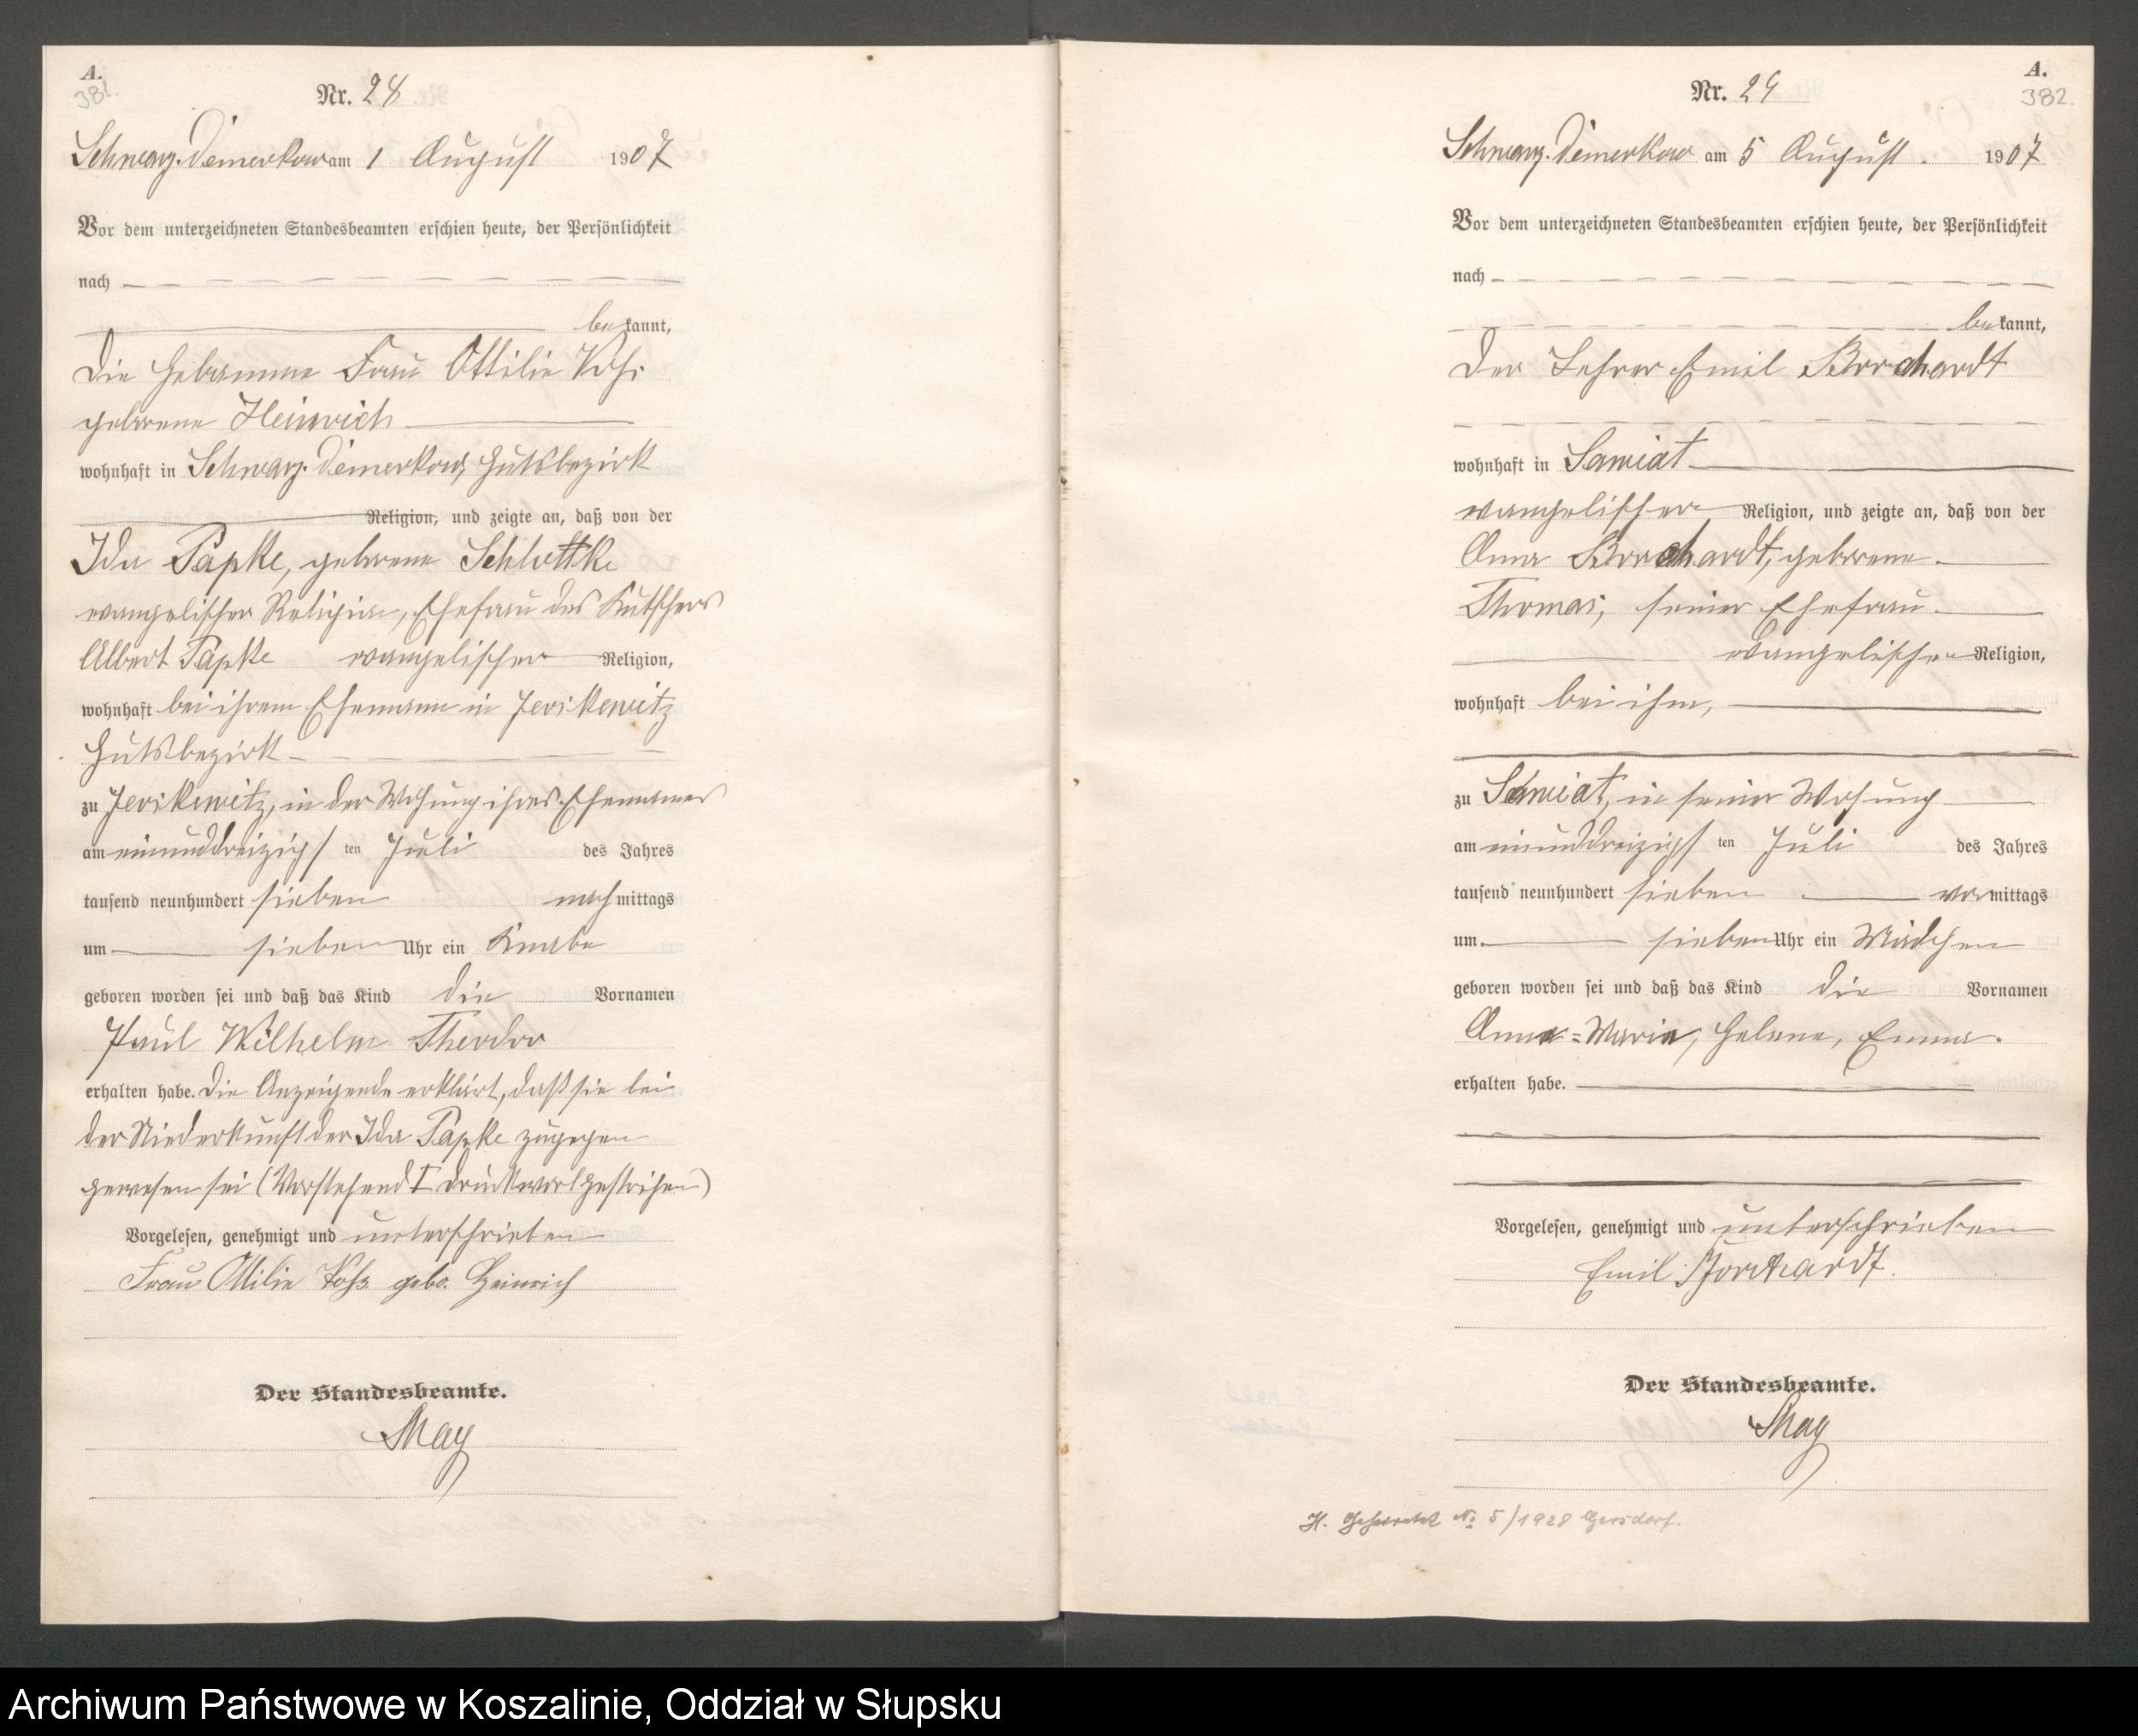 A.
381.
Nr. 28
Schwarz-Damerkow am 1 August 1907
Vor dem unterzeichneten Standesbeamten erschien heute, der Persönlichkeit
nach
bekannt,
die Hebamme Frau Ottilie Voß
geborene Heinrich
wohnhaft in Schwarz-Damerkow, Gutsbezirk
Religion, und zeigte an, daß von der
Ida Papke, geborene Schlottke
evangelischer Religion, Ehefrau des Kutschers
Albert Papke evangelischer Religion,
wohnhaft bei ihrem Ehemanne in Jerskewitz
Gutsbezirk
zu Jerskewitz, in der Wohnung ihres Ehemannes
am einunddreizigsten Juli des Jahres
tausend neunhundert sieben nachmittags
um sieben Uhr ein Knabe
geboren worden sei und daß das Kind die Vornamen
Paul Wilhelm Theodor
erhalten habe. Die Anzeigende erklärt, daß sie bei
der Niederkunft der Ida Papke zugegen
gewesen sei (Vorstehend 1 Druckwort gestrichen)
Vorgelesen, genehmigt und unterschrieben
Frau Ottilie Voß geb. Heinrich
Der Standesbeamte.
May
A.
382.
Nr. 29
Schwarz-Damerkow am 5 August. 1907
Vor dem unterzeichneten Standesbeamten erschien heute, der Persönlichkeit
nach
bekannt,
der Lehrer Emil Borchardt
wohnhaft in Saviat
evangelischer Religion, und zeigte an, daß von der
Anna Borchardt, geborene
Thomas, seiner Ehefrau
evangelischer Religion,
wohnhaft bei ihm,
zu Saviat, in seiner Wohnung
am einunddreizigsten Juli des Jahres
tausend neunhundert sieben vormittags
um sieben Uhr ein Mädchen
geboren worden sei und daß das Kind die Vornamen
Anna=Maria, Helene, Emma.
erhalten habe.
Vorgelesen, genehmigt und unterschrieben
Emil Borchardt.
Der Standesbeamte.
May
H. Geheiratet No 5/1928 Gersdorf.
Archiwum Państwowe w Koszalinie, Oddział w Słupsku